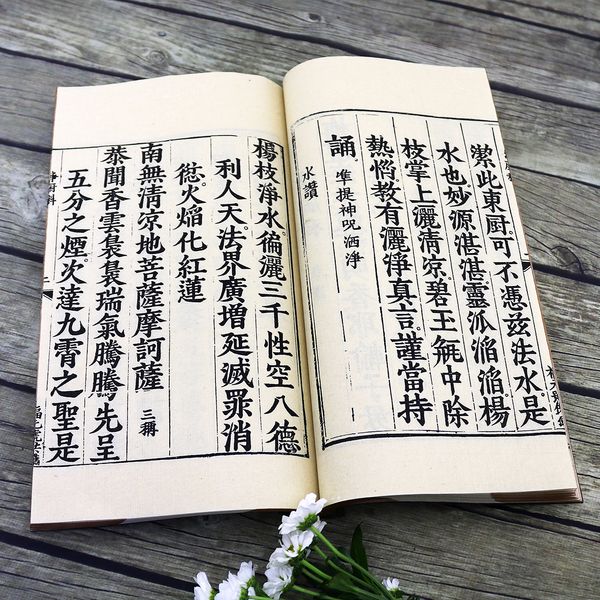 潔此東厨。可不憑茲法水。是
水也。妙源湛湛。靈泒滔滔。楊
枝掌上灑清凉。碧玉瓶中除
熱惱。教有灑淨真言。謹當持
誦。準提神呪洒淨
水讚
楊枝淨水。徧灑三千。性空八德
利人天。法界廣增延。滅罪消
愆。火焰化紅蓮
南無清凉地菩薩摩訶薩 三稱
恭聞香雲裊裊。瑞氣騰騰。先呈
五分之煙。次達九霄之聖。是